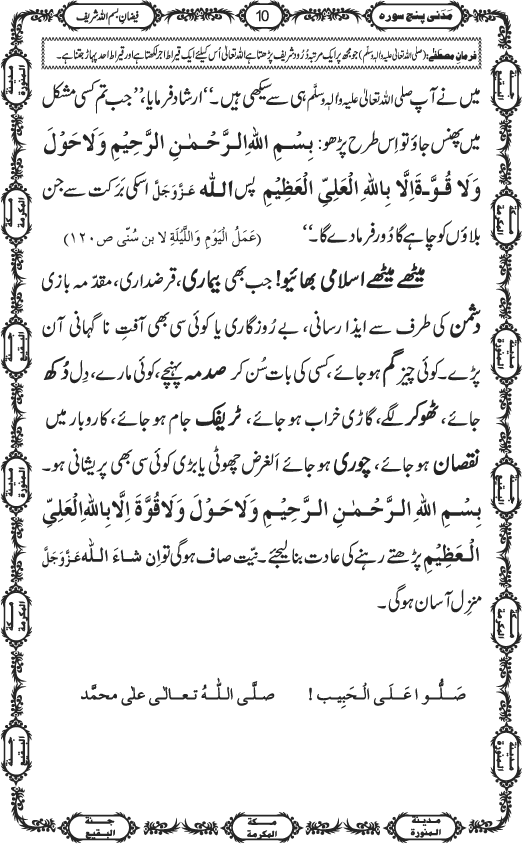 مَدَنی پنج سورہ
10
فیضانِ بسم اللہ شریف
فرمانِ مصطفیٰ: (صلی اللہ تعالیٰ علیہ والہٖ وسلّم) جو مجھ پر ایک مرتبہ دُرُود شریف پڑھتا ہے اللہ تعالیٰ اُس کیلئے ایک قیراط اجر لکھتا ہے اور قیراط احد پہاڑ جتنا ہے۔
میں نے آپ صلی اللہ تعالیٰ علیہ والہٖ وسلّم ہی سے سیکھی ہیں۔‘‘ ارشاد فرمایا، ’’جب تم کسی مشکل
میں پھنس جاؤ تو اِس طرح پڑھو: بِسْمِ اللهِ الرَّحْمٰنِ الرَّحِيْمِ وَلَا حَوْلَ
وَلَا قُوَّةَ اِلَّا بِاللهِ الْعَلِيِّ الْعَظِيْمِ پس اللہ عَزَّوَجَلَّ اسکی بَرَکت سے جن
بلاؤں کو چاہے گا دُور فرما دے گا۔‘‘ (عَمَلُ الْيَوْمِ وَاللَّيْلَةِ لا بن سُنّی ص ١٢٠)
میٹھے میٹھے اسلامی بھائیو! جب بھی بیماری، قرضداری، مقدّمہ بازی
دشمن کی طرف سے ایذا رسانی، بے رُوزگاری یا کوئی سی بھی آفتِ نا گہانی آن
پڑے۔ کوئی چیز گم ہو جائے، کسی کی بات سُن کر صدمہ پہنچے، کوئی مارے، دِل دُکھ
جائے، ٹھوکر لگے، گاڑی خراب ہو جائے، ٹریفک جام ہو جائے، کاروبار میں
نقصان ہو جائے، چوری ہو جائے اَلغرض چھوٹی یا بڑی کوئی سی بھی پریشانی ہو۔
بِسْمِ اللهِ الرَّحْمٰنِ الرَّحِيْمِ وَلَا حَوْلَ وَلَا قُوَّةَ اِلَّا بِاللهِ الْعَلِيِّ
الْعَظِيْمِ پڑھتے رہنے کی عادت بنا لیجئے۔ نیّت صاف ہوگی تو اِن شاءَ اللہ عَزَّوَجَلَّ
منزِل آسان ہوگی۔
صَلُّوا عَلَى الْحَبِيب ! صلَّى اللّٰهُ تعالٰى علٰى محمَّد
مدینة المنورة
جنة البقیع
مکة المکرمة
مکة المکرمة
جنة البقیع
مدینة المنورة
مدینة المنورة
جنة البقیع
مکة المکرمة
مکة المکرمة
جنة البقیع
مدینة المنورة
جنة البقیع
مکة المکرمة
مدینة المنورة